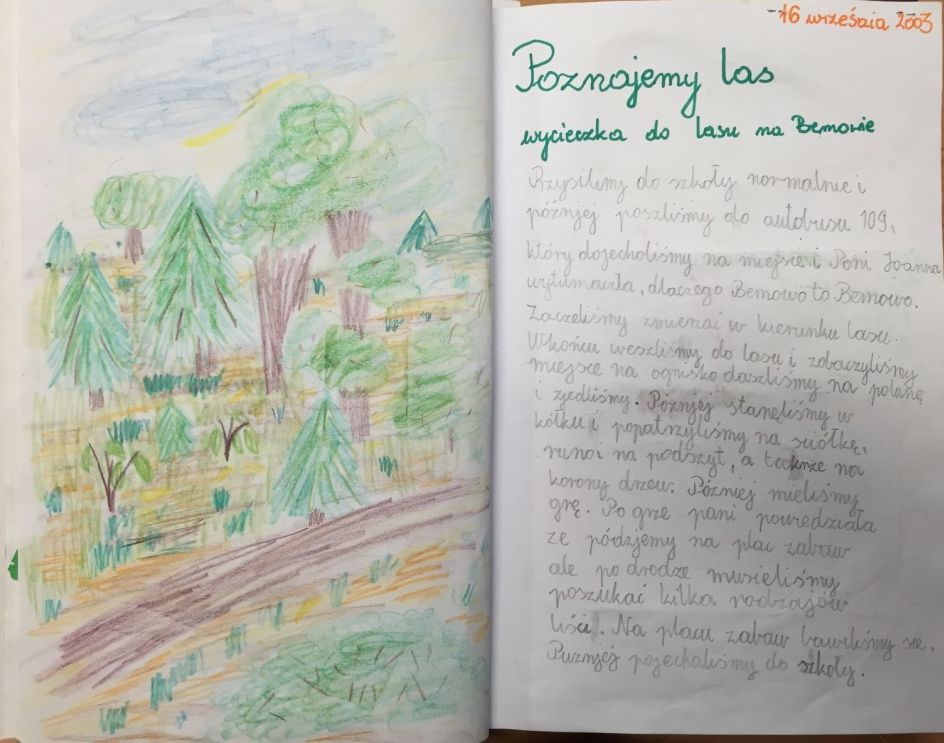 16 września 2003
Poznajemy las
wycieczka do lasu na Bemowie
Przysliśmy do szkoły normalnie i
późnjej poszliśmy do autobusu 109,
który dojechaliśmy na miejsce i Pani Joanna
wytłumaczła, dlaczego Bemowo to Bemowo.
Zaczeliśmy zmierzać w kierunku lasu.
Wkońcu weszliśmy do lasu i zobaczyliśmy
miejsce na ognisko daszliśmy na polanę
i zjedliśmy. Późnjej stanęliśmy w
kółku i popatrzyliśmy na sciółkę,
runo i na podszyt, a także na
korony drzew. Później mieliśmy
grę. Po grze pani powiedziała
ze pódzjemy na plac zabaw
ale po drodze musieliśmy
poszukać kilka rodzajów
liści. Na placu zabaw bawiliśmy się.
Puznjej pojechaliśmy do szkoły.